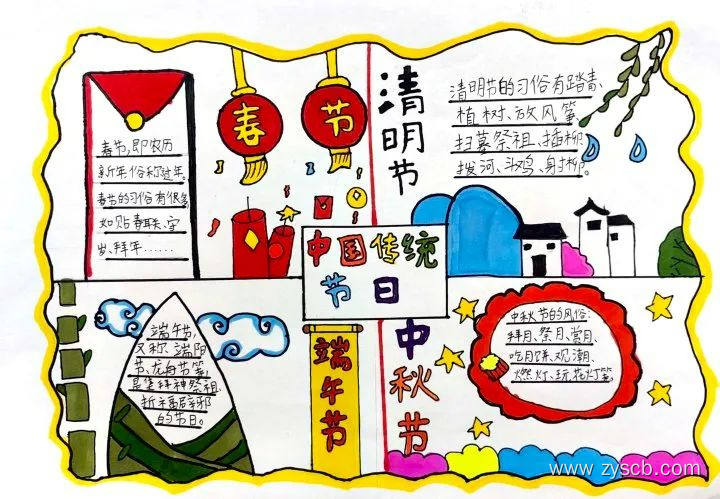 春节
春节,即农历
新年俗称过年。
春节的习俗有很多
如贴春联、守
岁、拜年……
清明节
清明节的习俗有踏青、
植树、放风筝、
扫墓祭祖、插柳、
拨河、斗鸡、射柳。
中国传统
节日
端午节,
又称端阳
节、龙舟节等,
是集拜神祭祖、
祈福辟邪
的节日。
端午节
中秋节
中秋节的风俗:
拜月、祭月、赏月、
吃月饼、观潮、
燃灯、玩花灯等。
www.zyscb.com